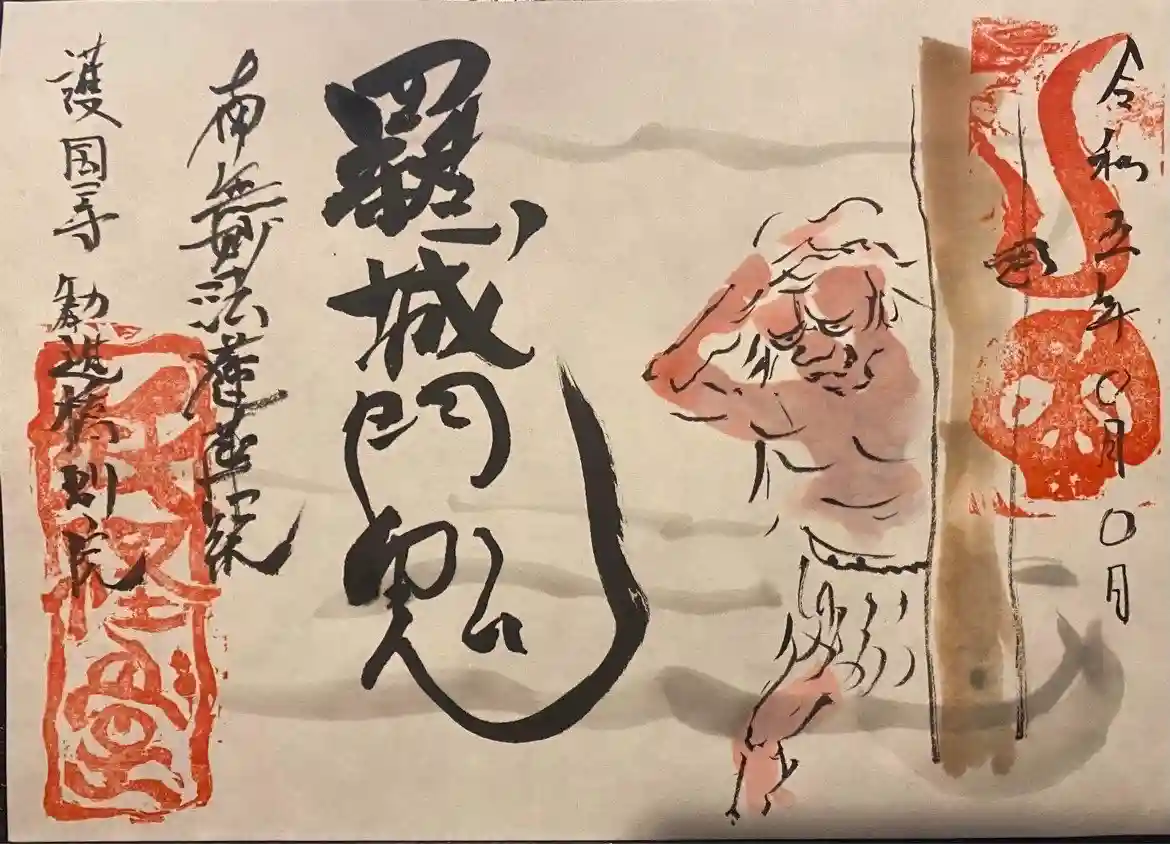 令和五年〇月〇日
羅城門鬼
南無妙法蓮華経
護国寺 勧進橋別院